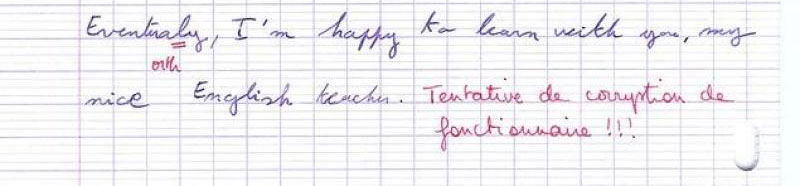 Eventualy, I'm happy to learn with you, my
orth
nice English teacher. Tentative de corruption de
fonctionnaire !!!